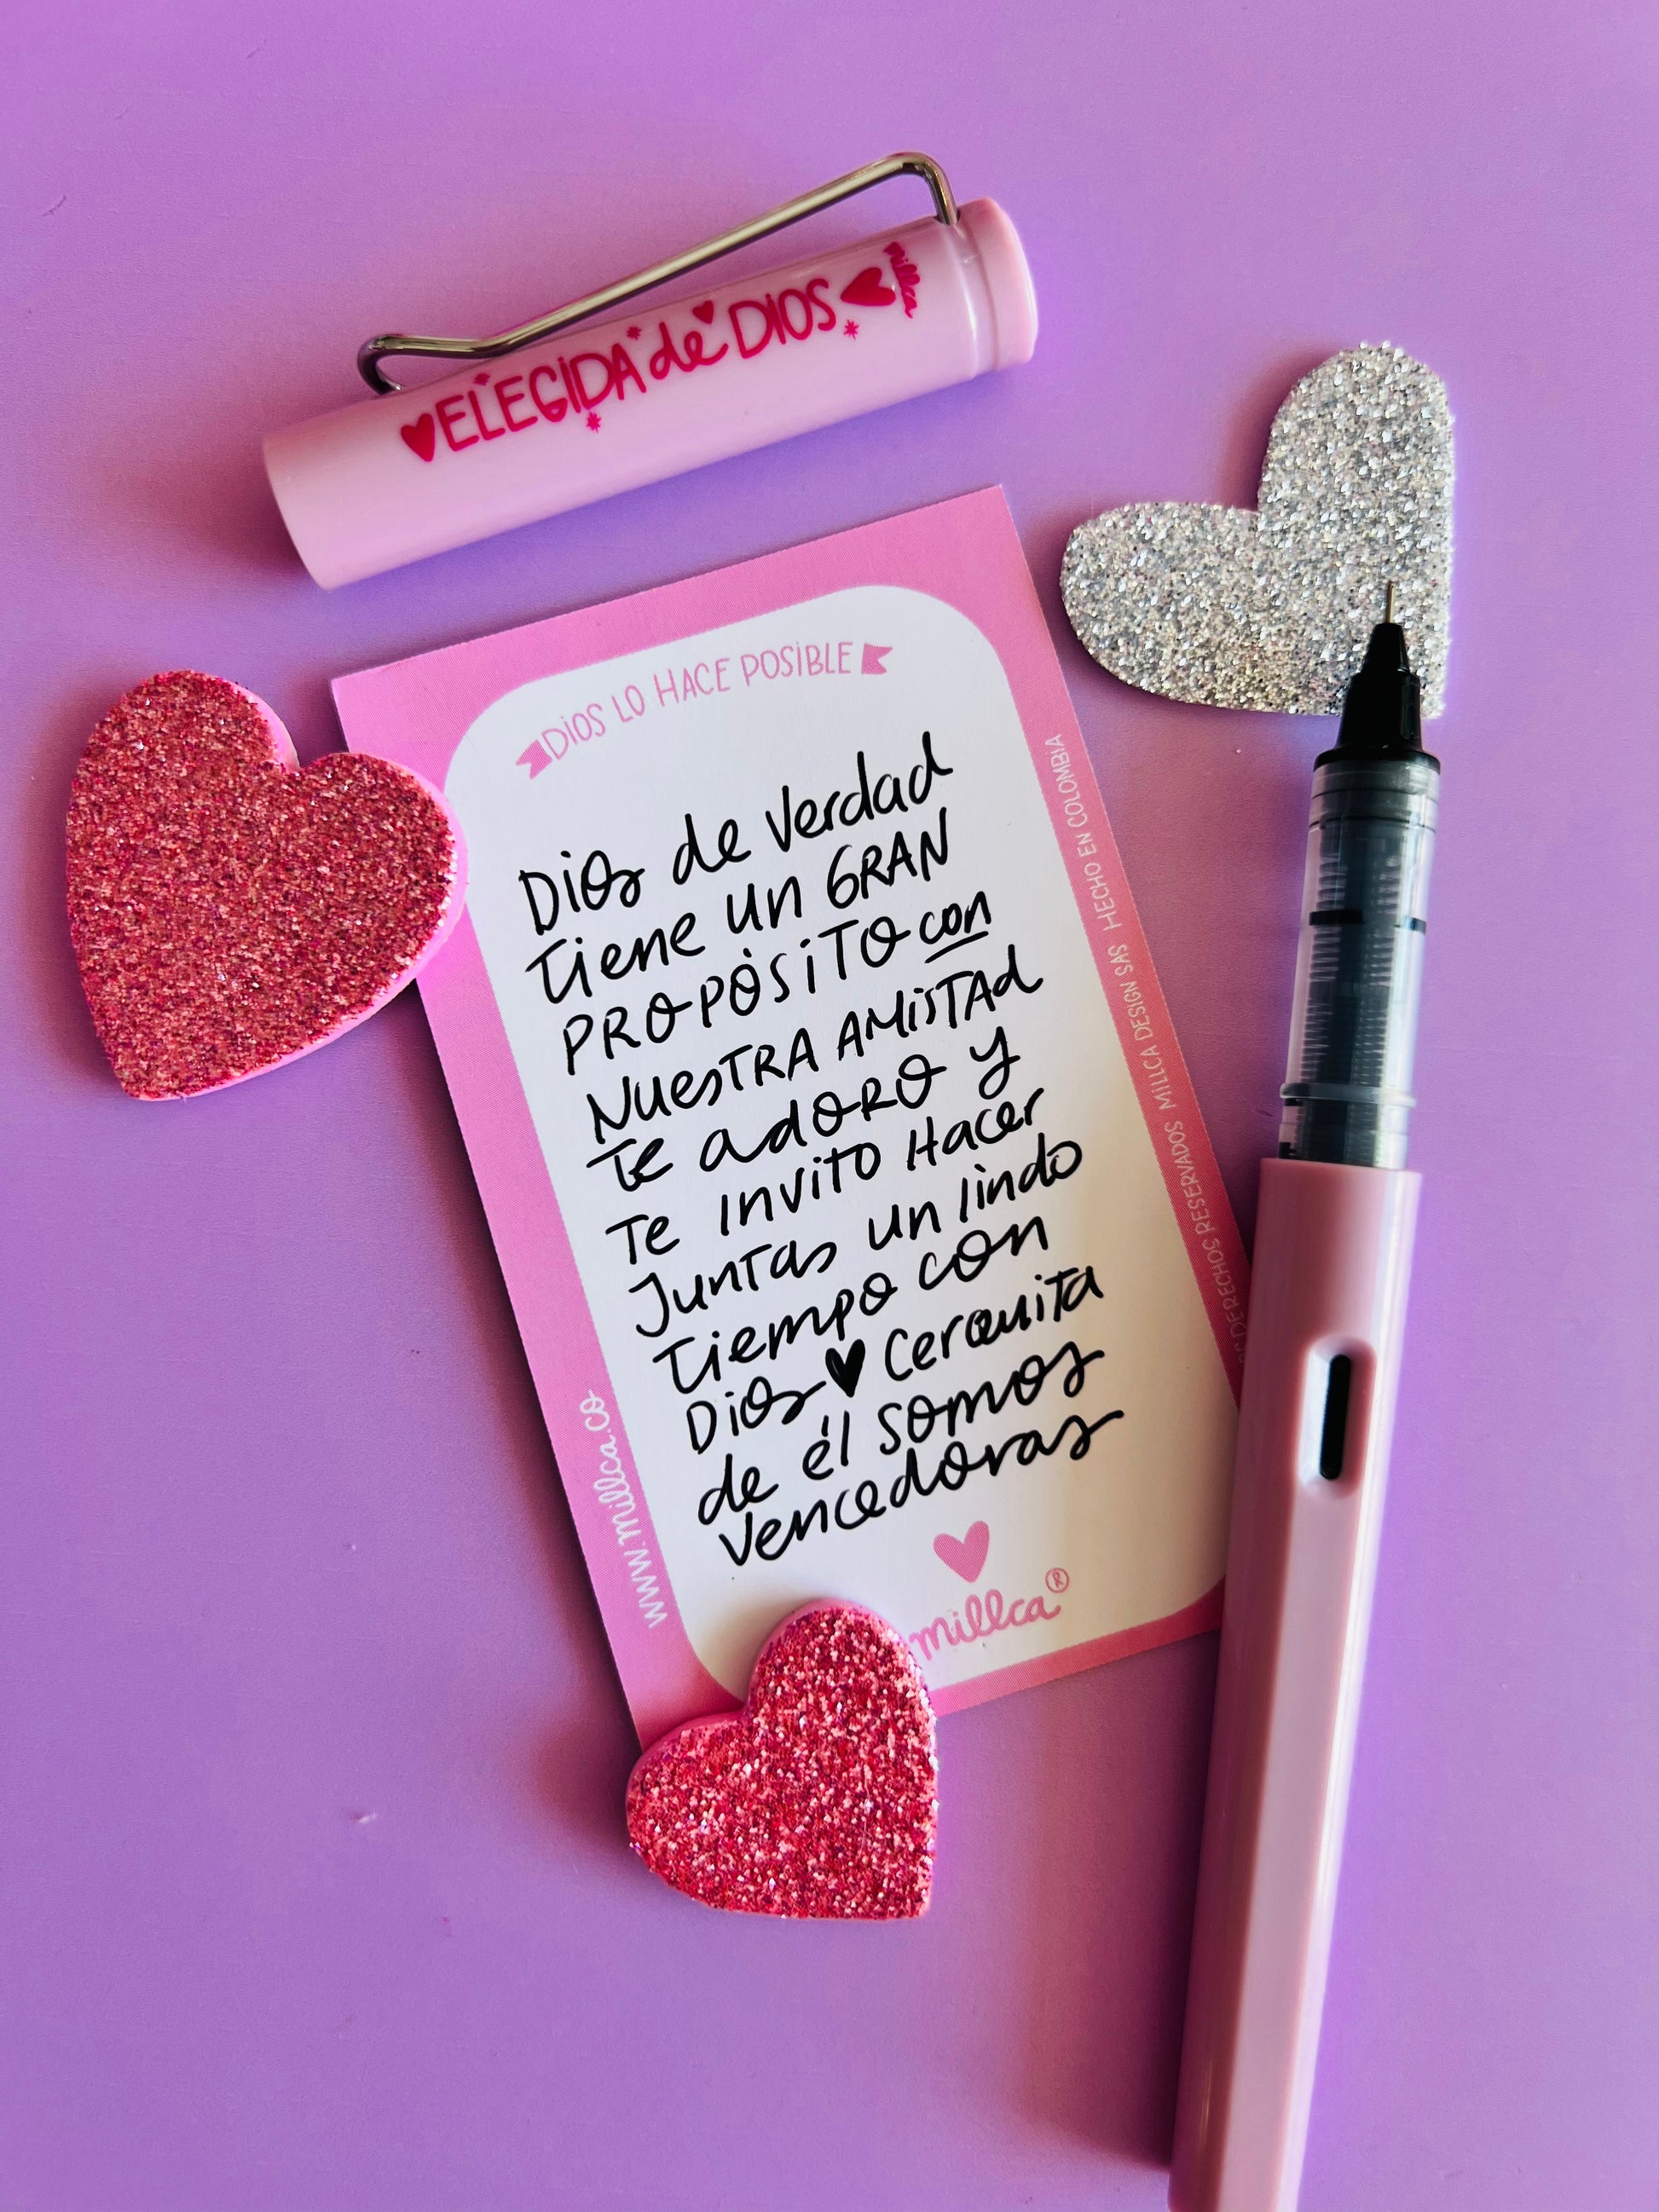 ELEGIDA de DIOS
millca
DIOS LO HACE POSIBLE
Dios de verdad
tiene un GRAN
PROPÓSITO con
NUESTRA AMISTAD
Te adoro y
Te invito Hacer
Juntas un lindo
Tiempo con
Dios ♥ cerquita
de él somos
vencedoras
millca®
www.millca.co
DERECHOS RESERVADOS MILLCA DESIGN SAS HECHO EN COLOMBIA